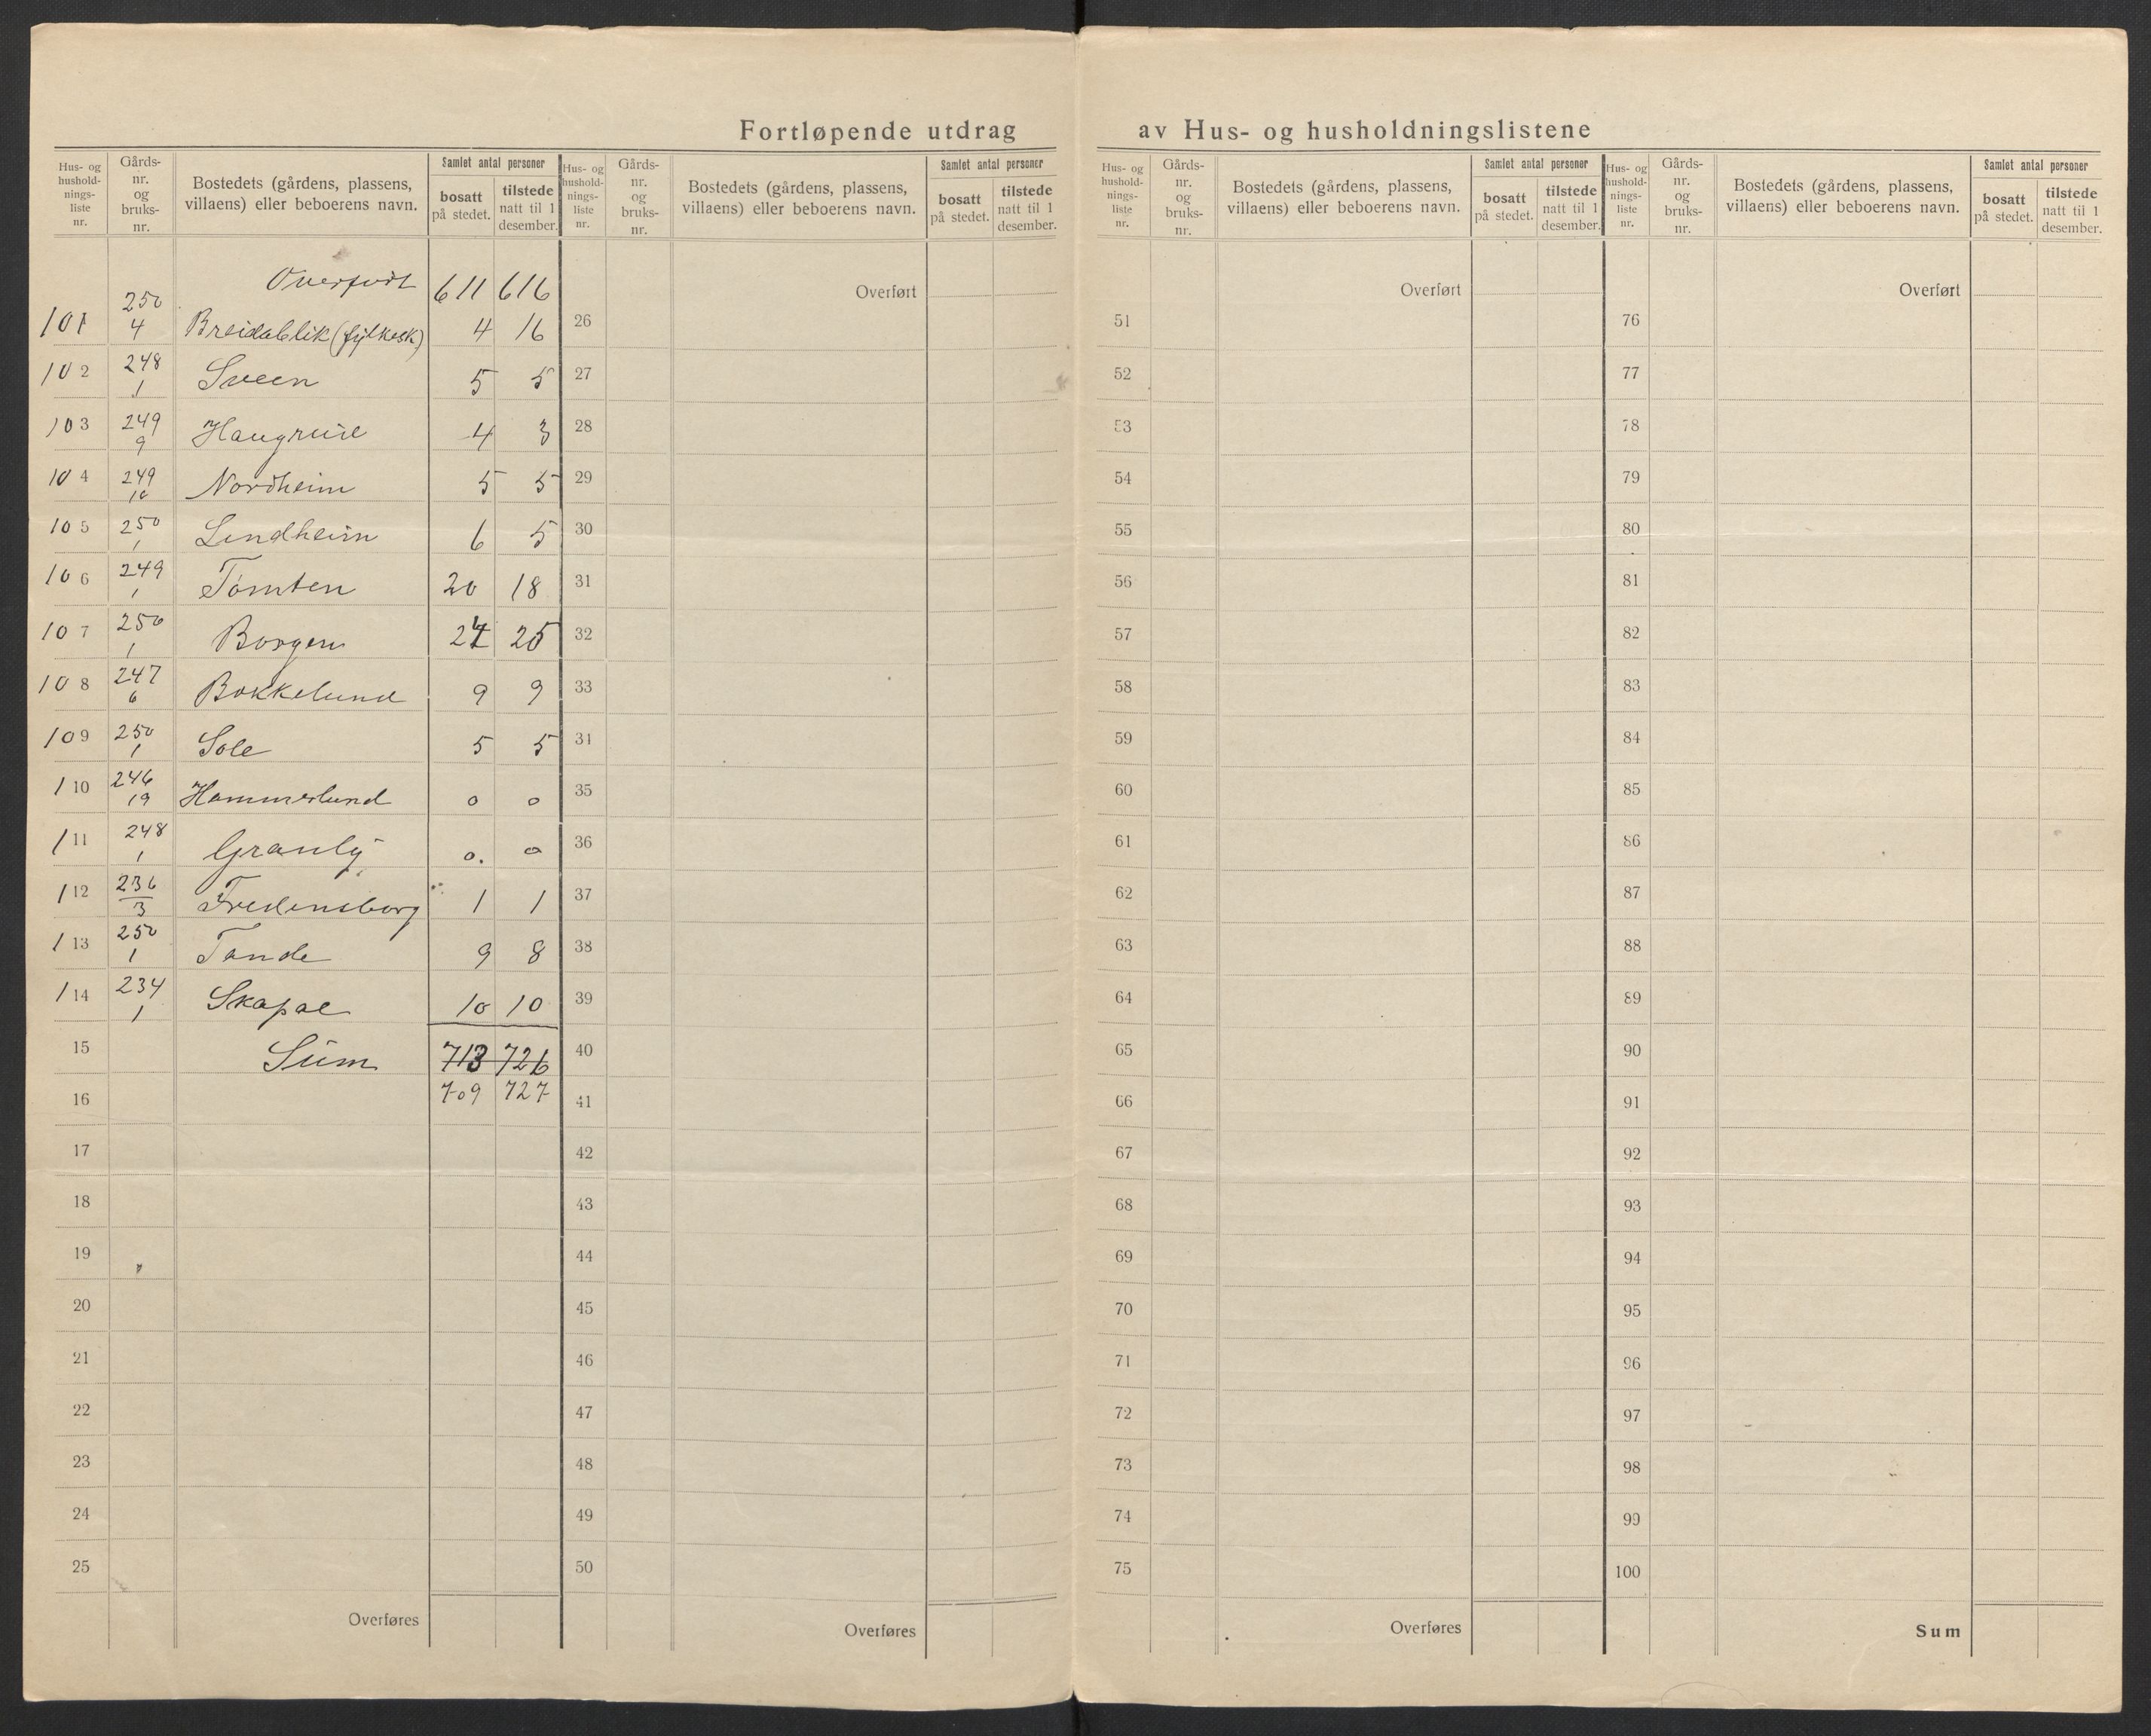 Fortløpende utdrag av Hus- og husholdningslistene
Hus- og hushold- nings- liste nr.
Gårds- nr. og bruks- nr.
Bostedets (gårdens, plassens, villaens) eller beboerens navn.
Samlet antal personer
bosatt på stedet.
tilstede natt til 1 desember.
Hus- og hushold- nings- liste nr.
Gårds- nr. og bruks- nr.
Bostedets (gårdens, plassens, villaens) eller beboerens navn.
Samlet antal personer
bosatt på stedet.
tilstede natt til 1 desember.
Hus- og hushold- nings- liste nr.
Gårds- nr. og bruks- nr.
Bostedets (gårdens, plassens, villaens) eller beboerens navn.
Samlet antal personer
bosatt på stedet.
tilstede natt til 1 desember.
Hus- og hushold- nings- liste nr.
Gårds- nr. og bruks- nr.
Bostedets (gårdens, plassens, villaens) eller beboerens navn.
Samlet antal personer
bosatt på stedet.
tilstede natt til 1 desember.
Overført 611 616
101 250 4 Breidablik (fylkesk.) 4 16
102 248 1 Sveen 5 5
103 249 9 Haugruie 4 3
104 249 10 Nordheim 5 5
105 250 1 Lindheim 6 5
106 249 1 Tomten 20 18
107 250 1 Borgen 25
108 247 6 Bakkelund 9 9
109 250 1 Sole 5 5
110 246 19 Hammerlund 0 0
111 248 1 Granly 0. 0
112 236 3 Fredensborg 1 1
113 250 1 Tande 9 8
114 234 1 Skapal 10 10
15 Sum 713 726
16 709 727
17
18
19
20
21
22
23
24
25
Overføres
Overført
26
27
28
29
30
31
32
33
31
35
36
37
38
39
40
41
42
43
44
45
46
47
48
49
50
Overføres
Overført
51
52
53
54
55
56
57
58
59
60
61
62
63
64
65
66
67
68
69
70
71
72
73
74
75
Overføres
Overført
76
77
78
79
80
81
82
83
84
85
86
87
88
89
90
91
92
93
94
95
96
97
98
99
100
Sum